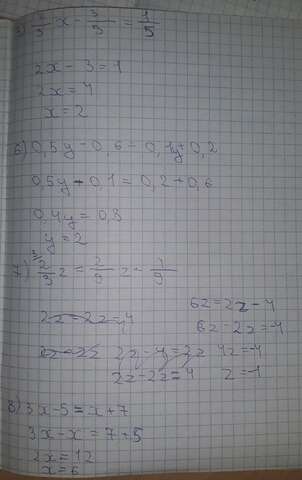 5) 2/5 x - 3/5 = 1/5
2x - 3 = 1
2x = 4
x = 2
6) 0,5y - 0,6 = 0,1y + 0,2
0,5y - 0,1 = 0,2 + 0,6
0,4y = 0,8
y = 2
7) 2/3 z = 2/9 z -
2z = 2z - 4
6z = 2z - 4
6z - 2z = -4
2z - 4 = 2z
4z = -4
2z - 2z = 4
z = -1
8) 3x - 5 = x + 7
3x - x = 7 + 5
2x = 12
x = 6